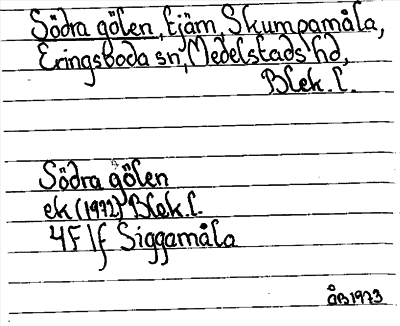 Södra gölen, tjärn, Skumpamåla,
Eringsboda sn, Medelstads hd,
Blek. l.
Södra gölen
ek (1972) Blek. l.
4F lf Siggamåla
ÅB 1973